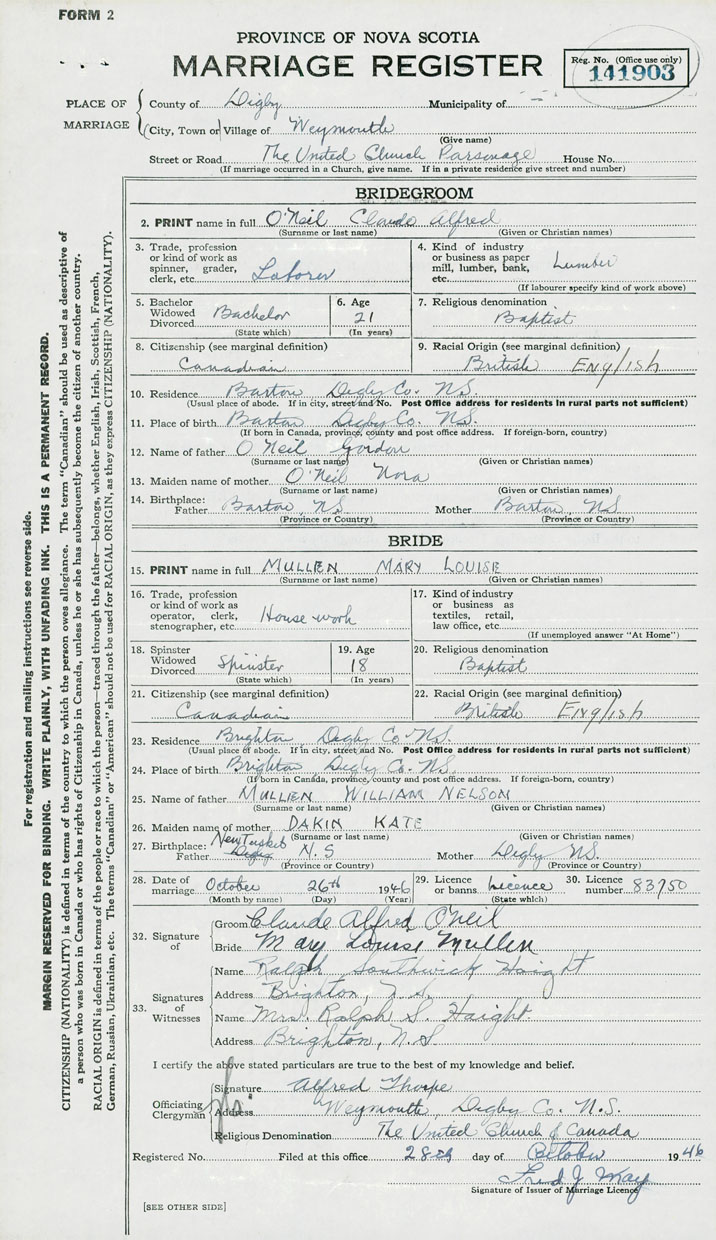 FORM 2
PROVINCE OF NOVA SCOTIA
MARRIAGE REGISTER
Reg. No. (Office use only)
141903
PLACE OF MARRIAGE
County of Digby Municipality of
(City, Town or) Village of Weymouth
(Give name)
Street or Road The United Church Parsonage House No.
(If marriage occurred in a Church, give name. If in a private residence give street and number)
BRIDEGROOM
2. PRINT name in full O'Neil Claude Alfred
(Surname or last name) (Given or Christian names)
3. Trade, profession or kind of work as spinner, grader, clerk, etc. Laborer
4. Kind of industry or business as paper mill, lumber, bank, etc. Lumber
(If labourer specify kind of work above)
5. Bachelor Widowed Divorced Bachelor
(State which)
6. Age 21
(In years)
7. Religious denomination
Baptist
8. Citizenship (see marginal definition)
Canadian
9. Racial Origin (see marginal definition)
British English
10. Residence Barton Digby Co. N.S.
(Usual place of abode. If in city, street and No. Post Office address for residents in rural parts not sufficient)
11. Place of birth Barton Digby Co. N.S.
(If born in Canada, province, county and post office address. If foreign-born, country)
12. Name of father O'Neil Gordon
(Surname or last name) (Given or Christian names)
13. Maiden name of mother O'Neil Nora
(Surname or last name) (Given or Christian names)
14. Birthplace: Father Barton, N.S. Mother Barton, N.S.
(Province or Country) (Province or Country)
BRIDE
15. PRINT name in full MULLEN MARY LOUISE
(Surname or last name) (Given or Christian names)
16. Trade, profession or kind of work as operator, clerk, stenographer, etc. House work
17. Kind of industry or business as textiles, retail, law office, etc.
(If unemployed answer "At Home")
18. Spinster Widowed Divorced Spinster
(State which)
19. Age 18
(In years)
20. Religious denomination
Baptist
21. Citizenship (see marginal definition)
Canadian
22. Racial Origin (see marginal definition)
British English
23. Residence Brighton Digby Co. N.S.
(Usual place of abode. If in city, street and No. Post Office address for residents in rural parts not sufficient)
24. Place of birth Brighton Digby Co. N.S.
(If born in Canada, province, county and post office address. If foreign-born, country)
25. Name of father MULLEN WILLIAM NELSON
(Surname or last name) (Given or Christian names)
26. Maiden name of mother DAKIN KATE
(Surname or last name) (Given or Christian names)
27. Birthplace: Father New Tusket Digby N.S Mother Digby N.S.
(Province or Country)
28. Date of marriage October 26th 1946
(Month by name) (Day) (Year)
29. Licence or banns Licence
(State which)
30. Licence number 83950
32. Signature of
Groom Claude Alfred O'Neil
Bride Mary Louise Mullen
33. Signatures of Witnesses
Name Ralph Southwick Haight
Address Brighton, N.S.
Name Mrs. Ralph S. Haight
Address Brighton, N.S
I certify the above stated particulars are true to the best of my knowledge and belief.
Officiating Clergyman
Signature Alfred Thorpe
Address Weymouth, Digby Co. N.S.
Religious Denomination The United Church of Canada
Registered No. Filed at this office 28th day of October 1946
Fred J. May
Signature of Issuer of Marriage Licence
[SEE OTHER SIDE]
For registration and mailing instructions see reverse side.
MARGIN RESERVED FOR BINDING. WRITE PLAINLY, WITH UNFADING INK. THIS IS A PERMANENT RECORD.
CITIZENSHIP (NATIONALITY) is defined in terms of the country to which the person owes allegiance. The term "Canadian" should be used as descriptive of
a person who was born in Canada or who has rights of Citizenship in Canada, unless he or she has subsequently become the citizen of another country.
RACIAL ORIGIN is defined in terms of the people or race to which the person—traced through the father—belongs, whether English, Irish, Scottish, French,
German, Russian, Ukrainian, etc. The terms "Canadian" or "American" should not be used for RACIAL ORIGIN, as they express CITIZENSHIP (NATIONALITY).